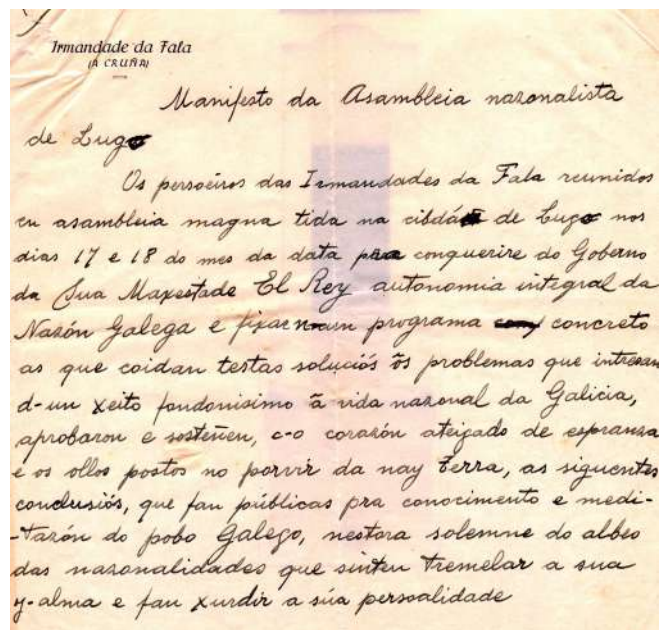 Irmandade da Fala
(A CRUÑA)
Manifesto da Asambleia nazonalista
de Lugo
Os persoeiros das Irmandades da Fala reunidos
en asambleia magna tida na cibdá de Lugo nos
dias 17 e 18 do mes da data pra conquerire do Goberno
da Sua Maxestade El Rey autonomia integral da
Nazón Galega e fixar un programa concreto
as que coidan testas soluciós ôs problemas que intresan
d-un xeito fondonisimo â vida nazonal da Galicia,
aprobaron e sosteñen, c-o corazón ateigado de espranza
e os ollos postos no porvir da nay terra, as siguentes
conclusiós, que fan públicas pra conocimento e medi-
-tazón do pobo Galego, nestora solemne do albeo
das nazonalidades que sinten tremelar a sua
y-alma e fan xurdir a súa persoalidade